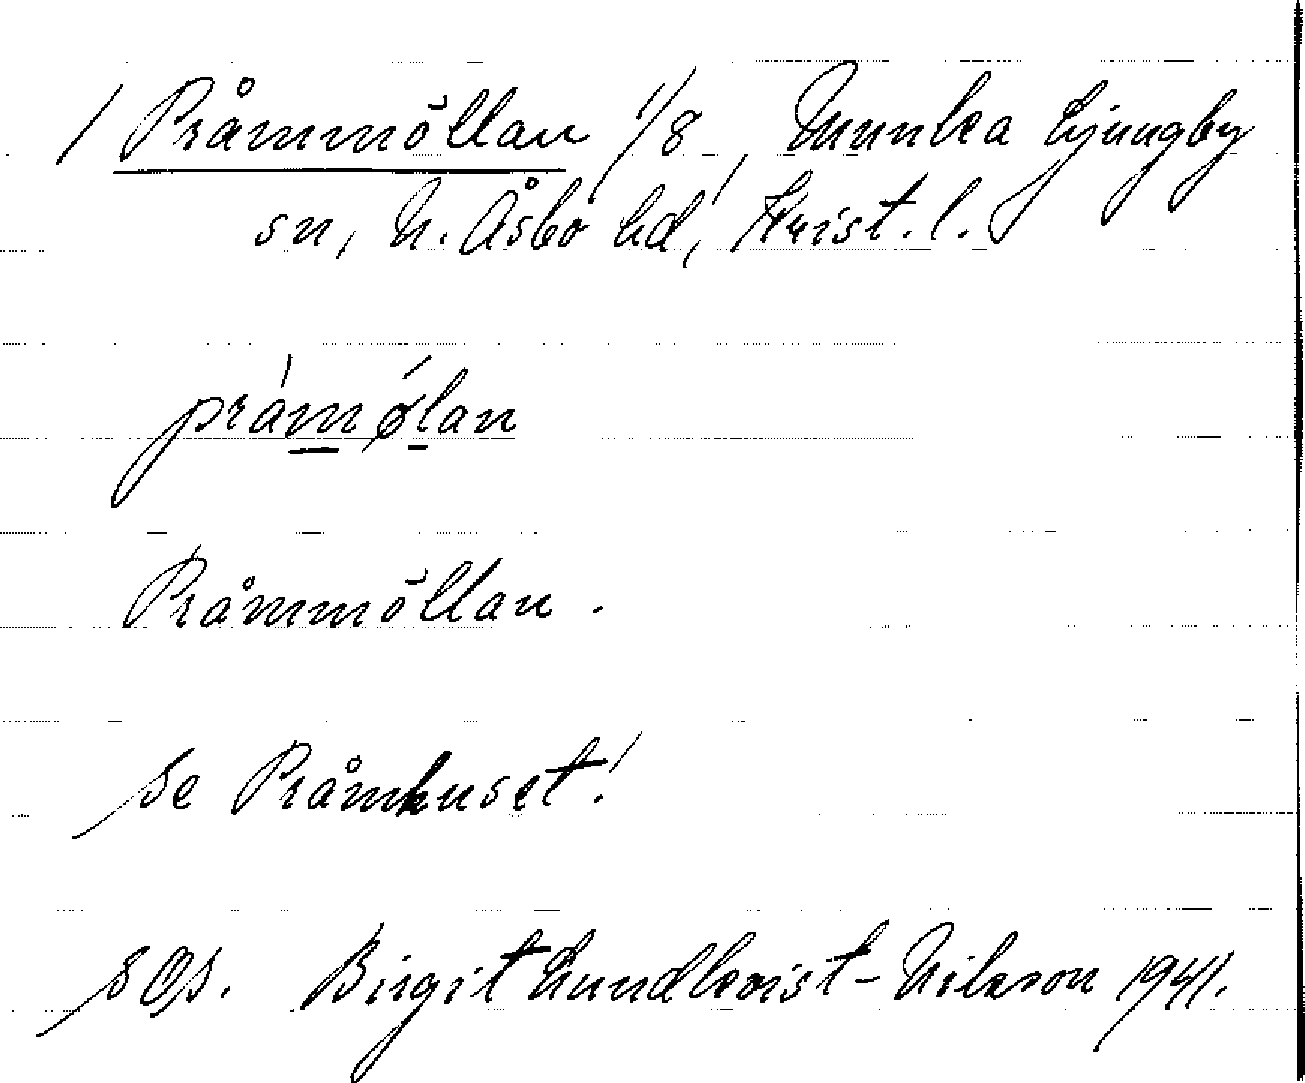 / Pråmmöllan 1/8, Munka Ljungby
sn, N. Åsbo hd, Krist. l.
pråmølan
Pråmmöllan.
Se Pråmhuset!
SOS. Birgit Lundkvist-Nilsson 1941.